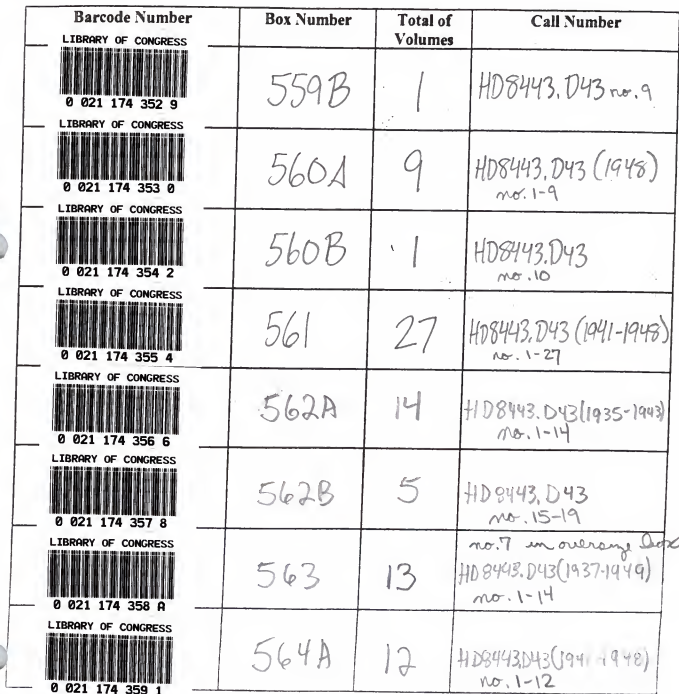 Barcode Number Box Number Total of Volumes Call Number
LIBRARY OF CONGRESS
0 021 174 352 9
559B 1 HD8443.D43 no.9
LIBRARY OF CONGRESS
0 021 174 353 0
560A 9 HD8443.D43 (1948)
no.1-9
LIBRARY OF CONGRESS
0 021 174 354 2
560B 1 HD8443.D43
no.10
LIBRARY OF CONGRESS
0 021 174 355 4
561 27 HD8443.D43 (1941-1948)
no.1-27
LIBRARY OF CONGRESS
0 021 174 356 6
562A 14 HD8443.D43(1935-1943)
no.1-14
LIBRARY OF CONGRESS
0 021 174 357 8
562B 5 HD8443.D43
no.15-19
LIBRARY OF CONGRESS
0 021 174 358 A
no.7 in oversize box
563 13 HD8443.D43(1937-1949)
no.1-14
LIBRARY OF CONGRESS
0 021 174 359 1
564A 12 HD8443.D43(1941-1948)
no.1-12